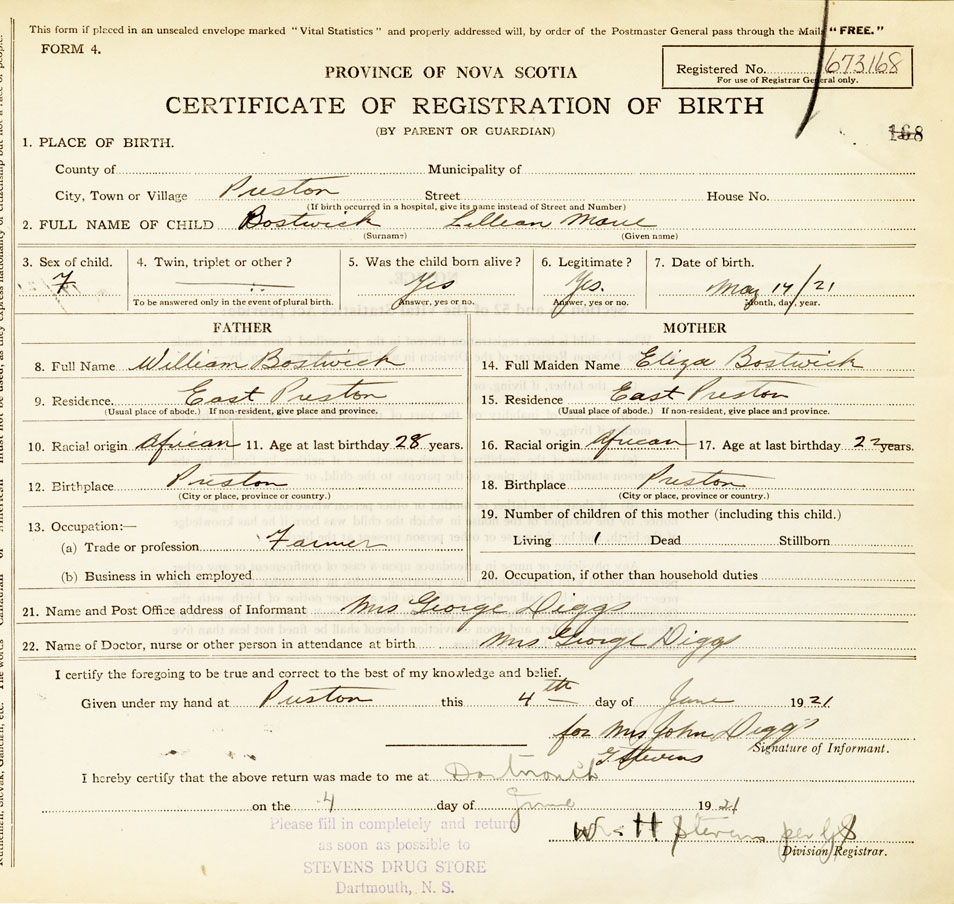 This form if placed in an unsealed envelope marked "Vital Statistics" and properly addressed will, by order of the Postmaster General pass through the Mails "FREE."
FORM 4.
Registered No. 673168
For use of Registrar General only.
PROVINCE OF NOVA SCOTIA
CERTIFICATE OF REGISTRATION OF BIRTH
(BY PARENT OR GUARDIAN)
168
1. PLACE OF BIRTH.
County of Municipality of
City, Town or Village Preston Street House No.
(If birth occurred in a hospital, give its name instead of Street and Number)
2. FULL NAME OF CHILD Bostwick Lillean Marie
(Surname) (Given name)
3. Sex of child. 4. Twin, triplet or other? 5. Was the child born alive? 6. Legitimate? 7. Date of birth.
F Yes Yes. May 14/21
To be answered only in the event of plural birth. Answer, yes or no. Answer, yes or no. Month, day, year.
FATHER MOTHER
8. Full Name William Bostwick 14. Full Maiden Name Eliza Bostwick
9. Residence. East Preston 15. Residence East Preston
(Usual place of abode.) If non-resident, give place and province. (Usual place of abode.) If non-resident, give place and province.
10. Racial origin African 11. Age at last birthday 28 years. 16. Racial origin African 17. Age at last birthday 22 years.
12. Birthplace Preston 18. Birthplace Preston
(City or place, province or country.) (City or place, province or country.)
13. Occupation:— 19. Number of children of this mother (including this child.)
(a) Trade or profession Farmer Living 1 Dead Stillborn
(b) Business in which employed 20. Occupation, if other than household duties
21. Name and Post Office address of Informant Mrs George Diggs
22. Name of Doctor, nurse or other person in attendance at birth Mrs George Diggs
I certify the foregoing to be true and correct to the best of my knowledge and belief.
Given under my hand at Preston this 4th day of June 1921
for Mrs John Diggs
Signature of Informant.
G. Stevens
I hereby certify that the above return was made to me at Dartmouth
on the 4 day of June 1921
Please fill in completely and return
as soon as possible to
STEVENS DRUG STORE
Dartmouth, N. S.
Wm H Stevens per GS
Division Registrar.